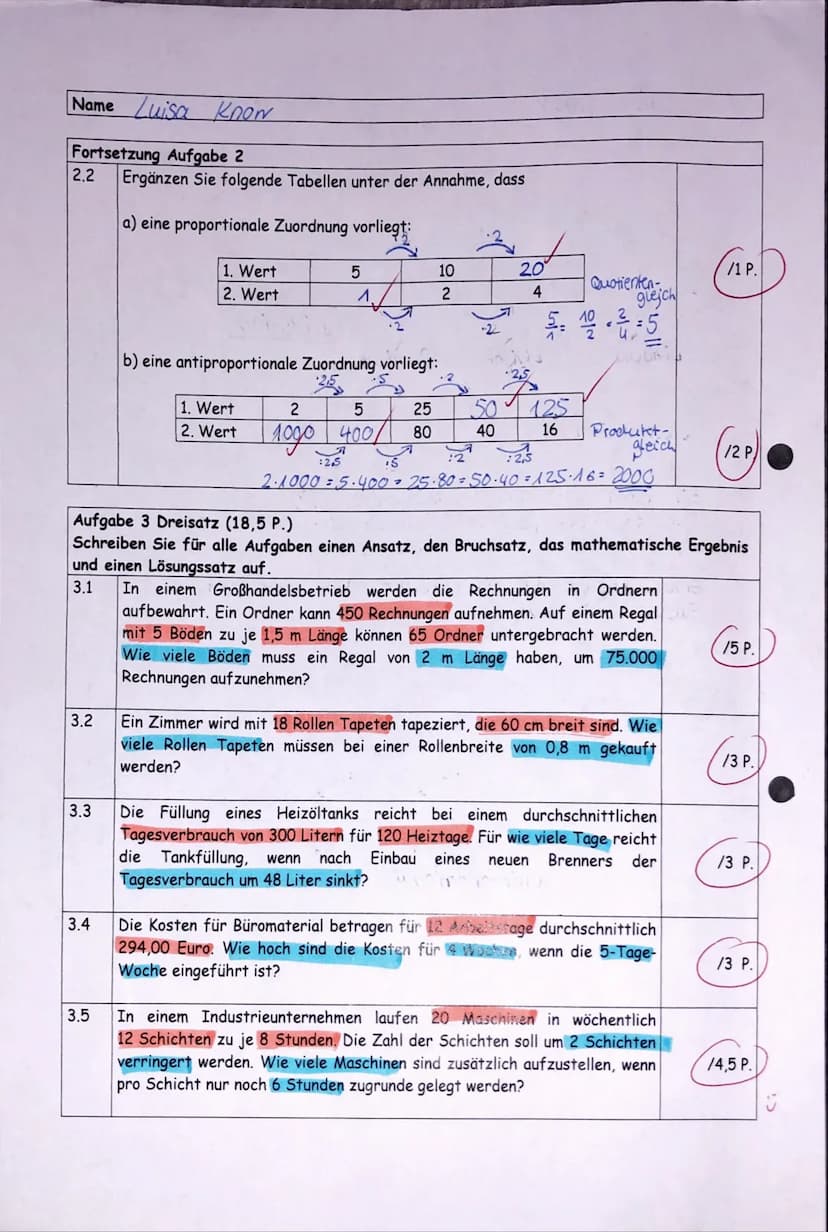 Name Luisa Knorr
Fortsetzung Aufgabe 2
2.2 Ergänzen Sie folgende Tabellen unter der Annahme, dass
a) eine proportionale Zuordnung vorliegt:
·2 ·2
1. Wert 5 10 20
2. Wert 1 2 4
/1 P.
Quotienten-
gleich
·2 ·2
5/1 = 10/2 = 2/4 = 5
b) eine antiproportionale Zuordnung vorliegt:
·2,5 ·5 ·2 ·2,5
1. Wert 2 5 25 50 125
2. Wert 1000 400 80 40 16
Produkt-
gleich
/2 P.
:2,5 :5 :2 :2,5
2·1000 = 5·400 = 25·80 = 50·40 = 125·16 = 2000
Aufgabe 3 Dreisatz (18,5 P.)
Schreiben Sie für alle Aufgaben einen Ansatz, den Bruchsatz, das mathematische Ergebnis
und einen Lösungssatz auf.
3.1 In einem Großhandelsbetrieb werden die Rechnungen in Ordnern
aufbewahrt. Ein Ordner kann 450 Rechnungen aufnehmen. Auf einem Regal
mit 5 Böden zu je 1,5 m Länge können 65 Ordner untergebracht werden.
Wie viele Böden muss ein Regal von 2 m Länge haben, um 75.000
Rechnungen aufzunehmen?
/5 P.
3.2 Ein Zimmer wird mit 18 Rollen Tapeten tapeziert, die 60 cm breit sind. Wie
viele Rollen Tapeten müssen bei einer Rollenbreite von 0,8 m gekauft
werden?
/3 P.
3.3 Die Füllung eines Heizöltanks reicht bei einem durchschnittlichen
Tagesverbrauch von 300 Litern für 120 Heiztage. Für wie viele Tage reicht
die Tankfüllung, wenn nach Einbau eines neuen Brenners der
Tagesverbrauch um 48 Liter sinkt?
/3 P.
3.4 Die Kosten für Büromaterial betragen für 12 Arbeitstage durchschnittlich
294,00 Euro. Wie hoch sind die Kosten für 4 Wochen, wenn die 5-Tage-
Woche eingeführt ist?
/3 P.
3.5 In einem Industrieunternehmen laufen 20 Maschinen in wöchentlich
12 Schichten zu je 8 Stunden. Die Zahl der Schichten soll um 2 Schichten
verringert werden. Wie viele Maschinen sind zusätzlich aufzustellen, wenn
pro Schicht nur noch 6 Stunden zugrunde gelegt werden?
/4,5 P.